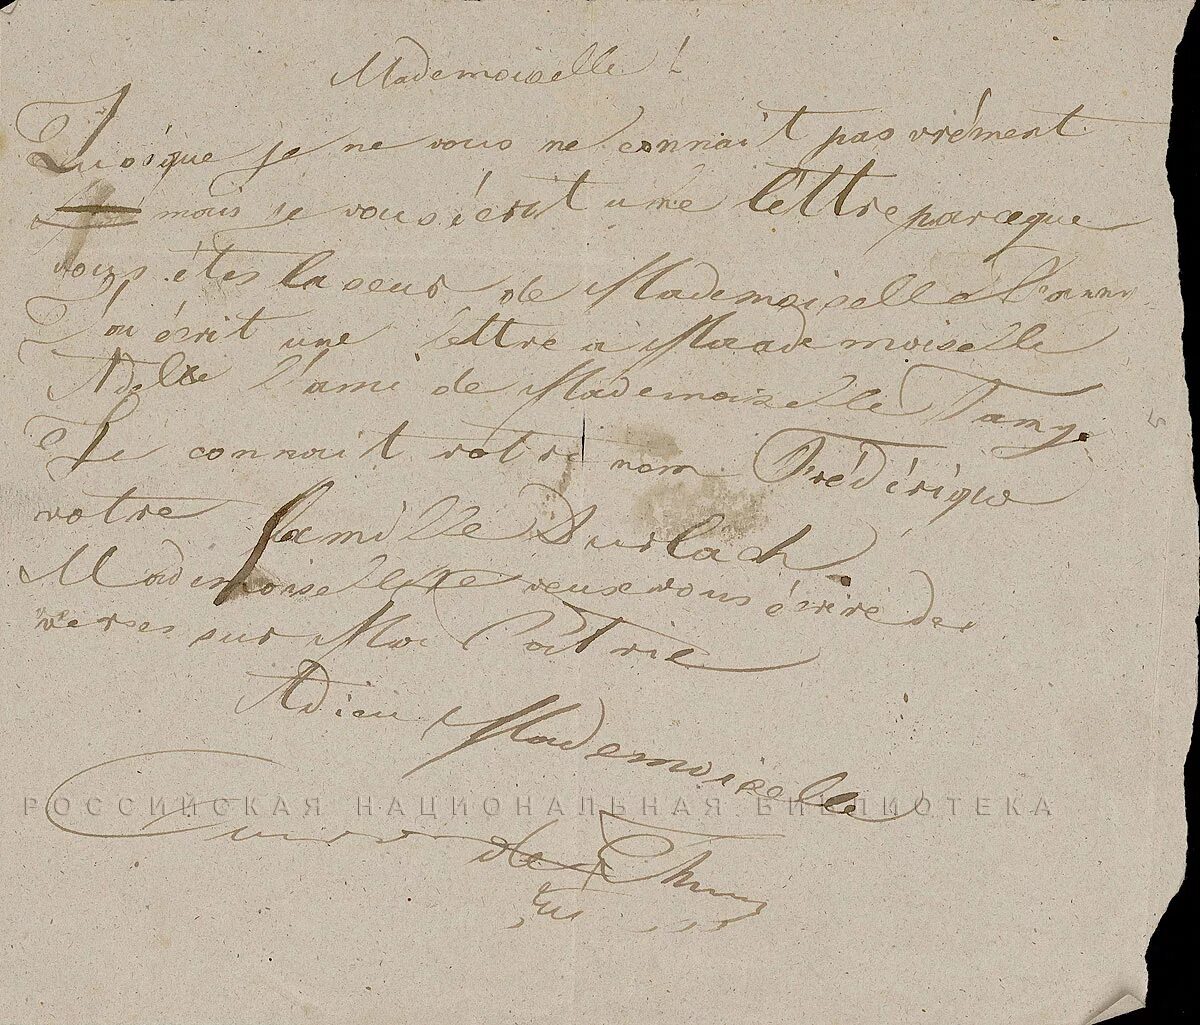 Mademoiselle!
Quoique je ne vous ne connait pas vrément
mais je vous écrit une lettre parceque
vous étes la seur de Mademoiselle Fanny
J'ai écrit une lettre a Maademoiselle
Adelle l'ami de Mademoiselle Fany.
Je connait votre nom Frédérique
votre famille Durlach
Mademoiselle veux vous écrire des
verses sur Ma Patrie
Adieu Mademoiselle
РОССИЙСКАЯ НАЦИОНАЛЬНАЯ БИБЛИОТЕКА
de
5